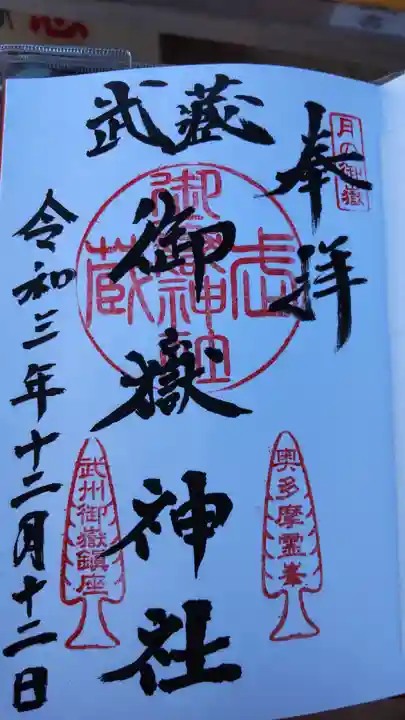 奉拝
月の御嶽
武蔵
御嶽
神社
武蔵御嶽神社
奥多摩霊峯
武州御嶽鎮座
令和三年十二月十二日